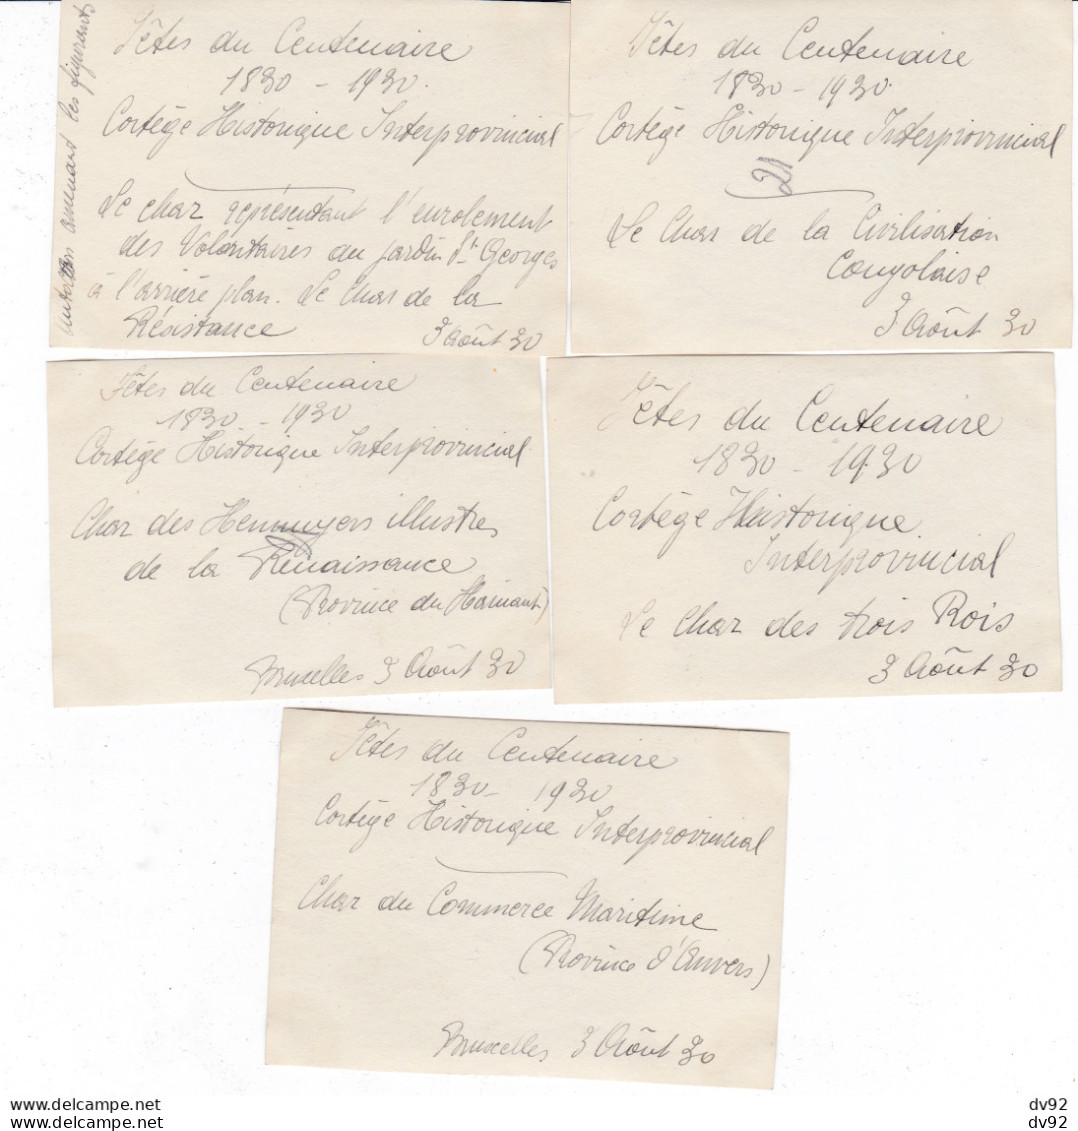 Fêtes du Centenaire
1830 - 1930.
Cortège Historique Interprovincial
Le char représentant l'enrolement
des Volontaires au jardin St Georges
à l'arrière plan. Le char de la
Résistance
3 Août 30
Autocars amenant les figurants
Fêtes du Centenaire
1830 - 1930.
Cortège Historique Interprovincial
21
Le Char de la Civilisation
Congolaise
3 Août 30
Fêtes du Centenaire
1830 - 1930
Cortège Historique Interprovincial
Char des Hennuyers illustres
de la Renaissance
(Province du Hainaut)
Bruxelles 3 Août 30
Fêtes du Centenaire
1830 - 1930
Cortège Historique
Interprovincial
Le Char des trois Rois
3 Août 30
Fêtes du Centenaire
1830 - 1930
Cortège Historique Interprovincial
Char du Commerce Maritime
(Province d'Anvers)
Bruxelles 3 Août 30
dv92
dv92